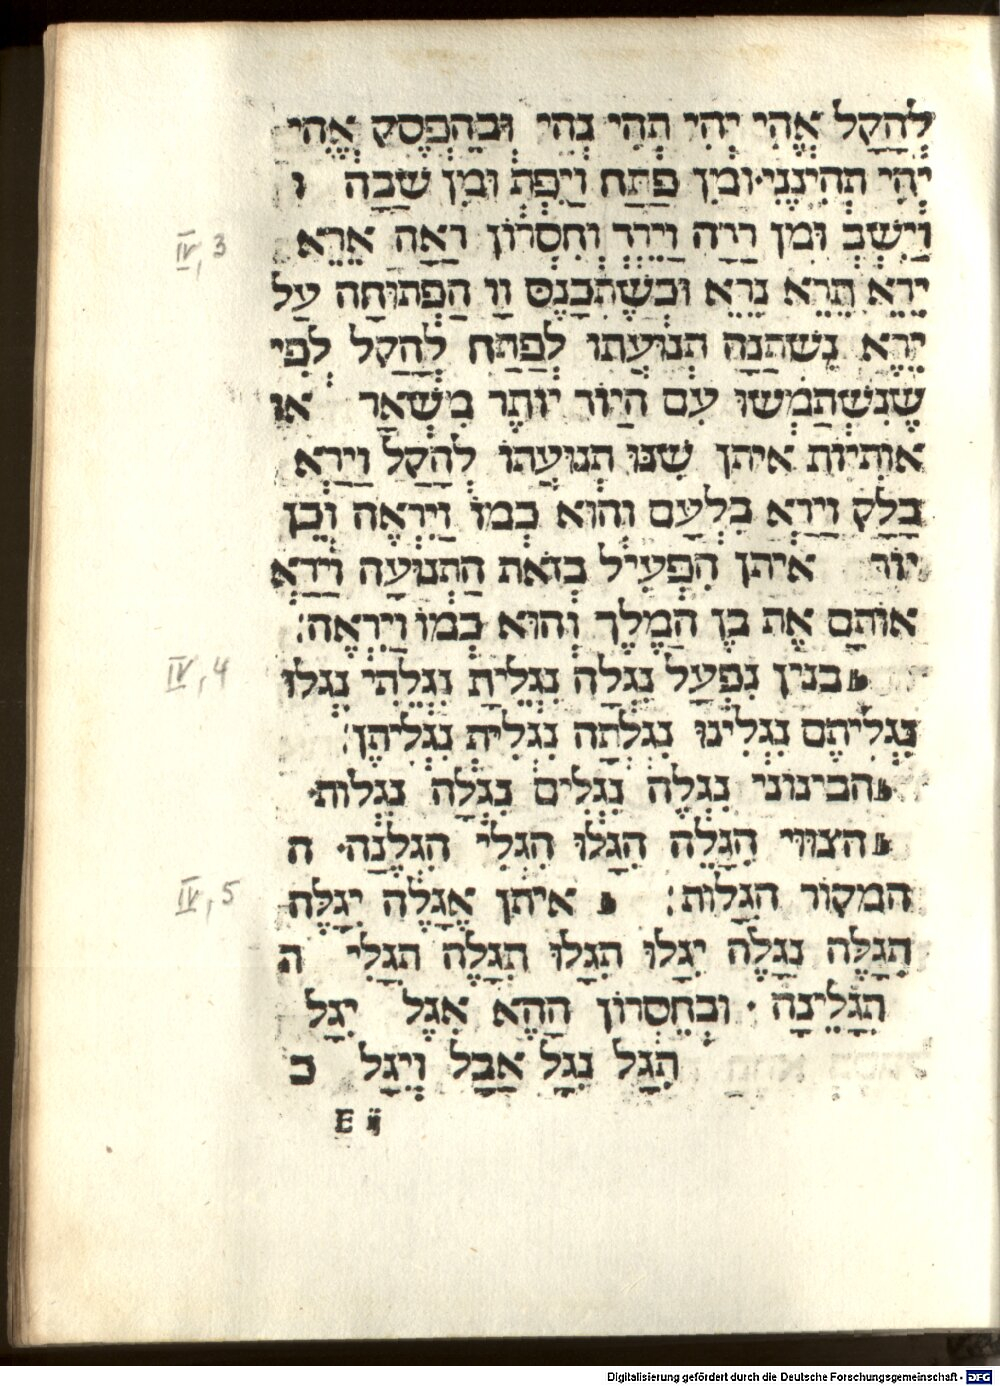 לְהָקַל אֱהִי יְהִי תְהִי נְהִי וּבְהֶפְסֵק אֱהִי
יְהִי תְהִינְנִי׃ וּמִן פַּתַח וַיִּפְתְּ וּמִן שַׁבָה ו
וַיִּשְׁבְּ וּמִן רַדָה וַיֵּרְדְּ וְחִסְרוֹן רַאַה אֵרֵא
יֵרֵא תֵּרֵא נֵרֵא וּכְשֶׁתִּכָּנֵס וָו הַפְּתוּחָה עַל
יֵרֶא נִשְׁתַּנָה תְנוּעָתוֹ לְפַתַח לְהָקַל לְפִי
שֶׁנִשְׁתַמְשׁוּ עִם הַיוֹד יוֹתֶר מִשְׁאָר או
אוֹתִיוֹת איתן שִׁנּוּ תְנוּעָתוֹ לְהָקַל וַיַּרְא
בָּלָק וַיַּרְא בִּלְעָם וְהוּא כְמוֹ וַיִּרְאֶה וְכֵן
יוֹד איתן הִפְעִיל בְּזֹאת הַתְנוּעָה וַיַּרְא
אוֹתָם אֶת בֶּן הַמֶלֶךְ וְהוּא כְּמוֹ וַיִרְאֶה׃
בנין נִפְעַל נִגְלָה נִגְלֵיתָ נִגְלֵתִי נִגְלוּ
נִגְלֵיתֶם נִגְלִינוּ נִגְלְתָה נִגְלֵית נִגְלֵיתֶן׃
הבינוני נִגְלֶה נִגְלִים נִגְלָה נִגְלוֹת
הצווי הִגָּלֵה הִגָּלוּ הִגָּלִי הִגָּלֶנָה ה
המקור הִגָּלוֹת׃ איתן אֶגָּלֶה יִגָּלֶה
תִּגָּלֶה נִגָּלֶה יִגָּלוּ תִגָּלוּ תִּגָּלֶה תִגָּלִי ה
תִּגָּלֵינָה וּבְחֶסְרוֹן הַהֵא אִגָּל יִגָּל
תִּגָּל נִגָּל אֲבָל וְיִגָּל כ
E ij
IV, 3
IV, 4
IV, 5
Digitalisierung gefördert durch die Deutsche Forschungsgemeinschaft - DFG